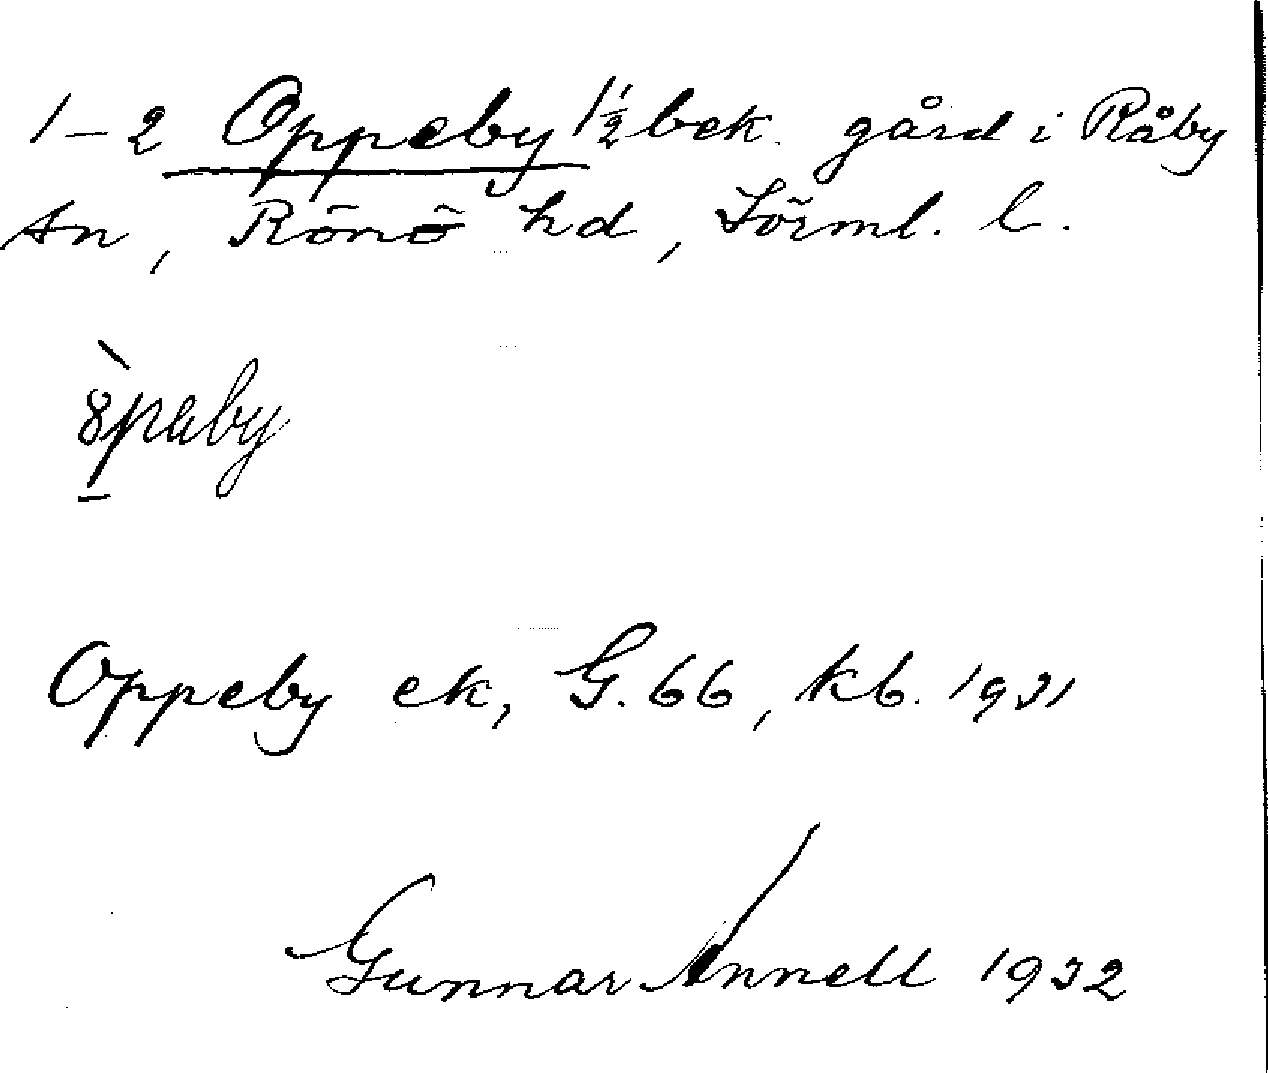 1–2 Oppeby 1½ bek. gård i Råby
sn, Rönö hd, Sörml. l.
Oppeby ek, G. 66, kb. 1931
Gunnar Annell 1932